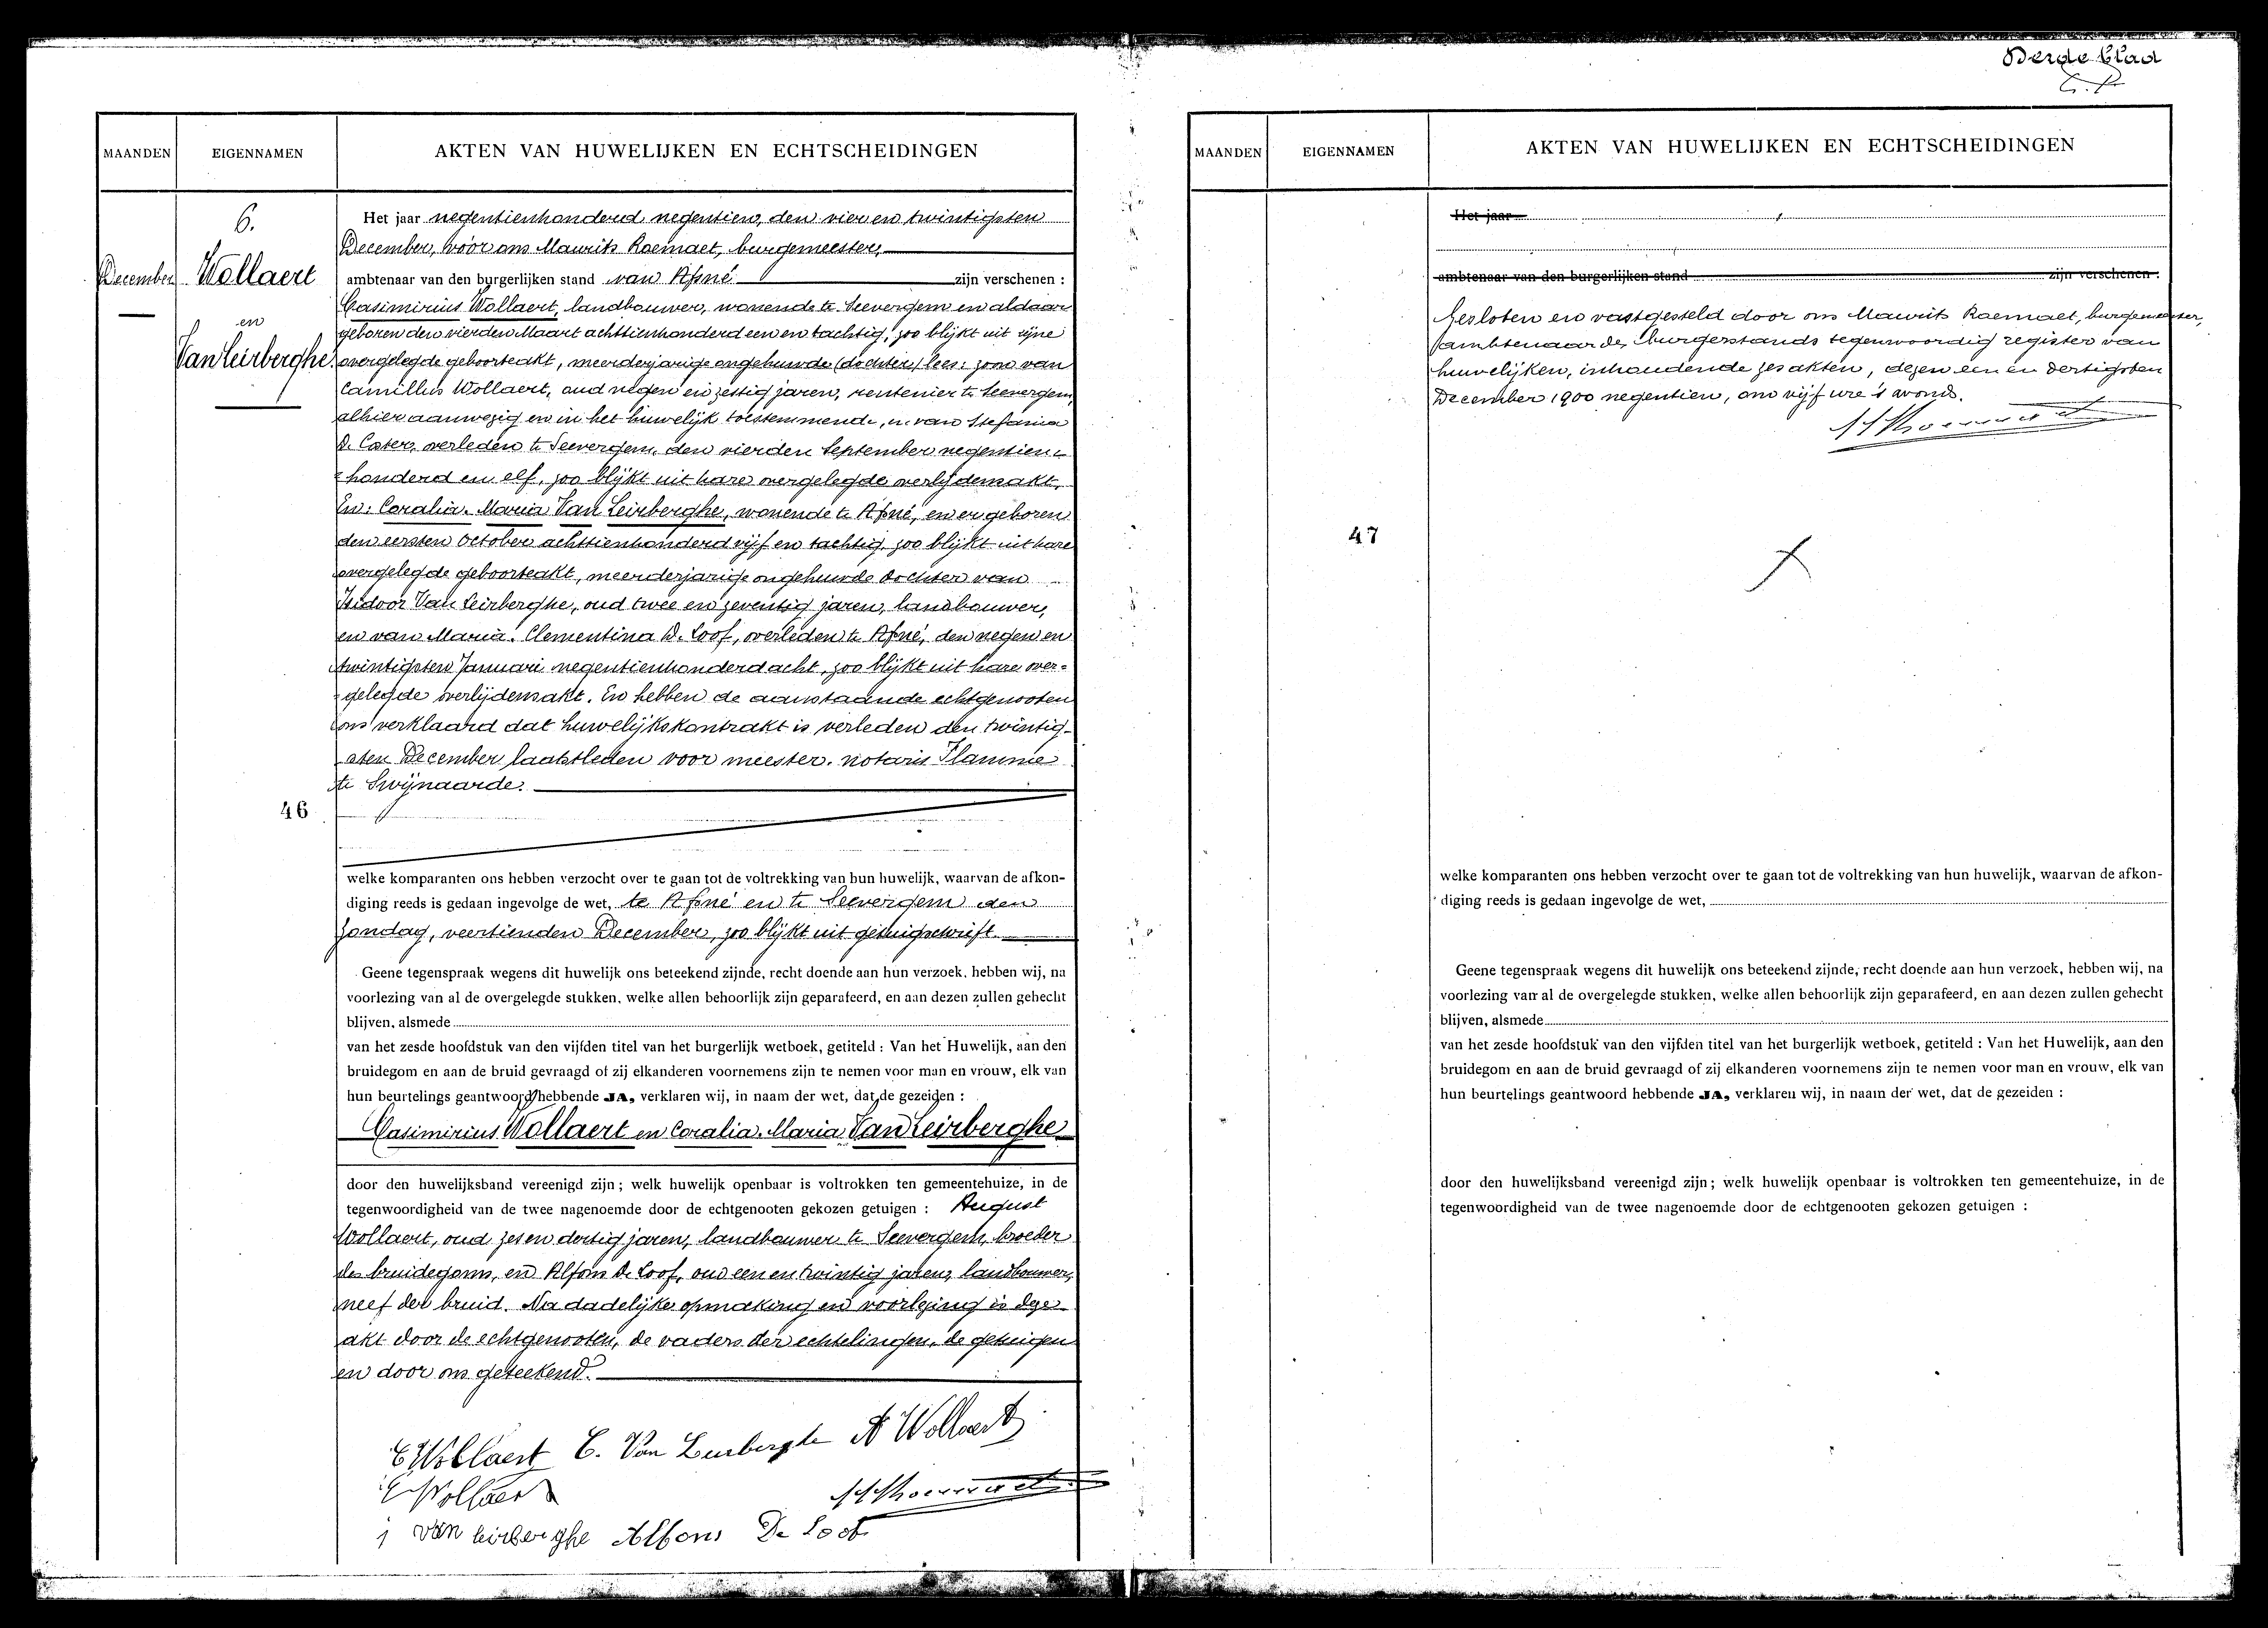 Derde blad
MAANDEN
EIGENNAMEN
AKTEN VAN HUWELIJKEN EN ECHTSCHEIDINGEN
6.
December
Wollaert
en
Van Leirberghe.
Het jaar negentienhonderd negentien, den vier en twintigsten
December, vóór ons Maurits Roemaet, burgemeester,
ambtenaar van den burgerlijken stand van Afsné zijn verschenen :
Casimirius Wollaert, landbouwer, wonende te Seevergem en aldaar
geboren den vierden Maart achttienhonderd een en tachtig, zoo blijkt uit zijne
overgelegde geboorteakt, meerderjarige ongehuwde (dochter) lees: zoon van
Camillus Wollaert, oud negen en zestig jaren, rentenier te Seevergem,
alhier aanwezig en in het huwelijk toestemmende, en van Stefania
De Coster, verleden te Seevergem, den vierden September negentien-
honderd en elf, zoo blijkt uit hare overgelegde overlijdensakt,
En: Coralia. Maria Van Leirberghe, wonende te Afsné, en er geboren
den eersten October achttienhonderd vijf en tachtig, zoo blijkt uit hare
overgelegde geboorteakt, meerderjarige ongehuwde dochter van
Isidoor Van Leirberghe, oud twee en zeventig jaren, landbouwer,
en van Maria. Clementina De Loof, overleden te Afsné, den negen en
twintigsten Januari negentienhonderd acht, zoo blijkt uit hare over-
-gelegde overlijdensakt. En hebben de aanstaande echtgenooten
ons verklaard dat huwelijkskontrakt is verleden den twintig-
sten December laatstleden voor meester. notaris Flamme
te Swijnaarde.
46
welke komparanten ons hebben verzocht over te gaan tot de voltrekking van hun huwelijk, waarvan de afkon-
diging reeds is gedaan ingevolge de wet, te Afsné en te Seevergem den
zondag, veertienden December, zoo blijkt uit getuigschrift.
Geene tegenspraak wegens dit huwelijk ons beteekend zijnde, recht doende aan hun verzoek, hebben wij, na
voorlezing van al de overgelegde stukken, welke allen behoorlijk zijn geparafeerd, en aan dezen zullen gehecht
blijven, alsmede
van het zesde hoofdstuk van den vijfden titel van het burgerlijk wetboek, getiteld : Van het Huwelijk, aan den
bruidegom en aan de bruid gevraagd of zij elkanderen voornemens zijn te nemen voor man en vrouw, elk van
hun beurtelings geantwoord hebbende JA, verklaren wij, in naam der wet, dat de gezeiden :
Casimirius Wollaert en Coralia. Maria Van Leirberghe
door den huwelijksband vereenigd zijn ; welk huwelijk openbaar is voltrokken ten gemeentehuize, in de
tegenwoordigheid van de twee nagenoemde door de echtgenooten gekozen getuigen : August
Wollaert, oud zes en dertig jaren, landbouwer te Seevergem, broeder
des bruidegoms, en Alfons De Loof, oud een en twintig jaren, landbouwer,
neef der bruid. Na dadelijke opmaking en voorlezing is deze
akt door de echtgenooten, de vaders der echtelingen, de getuigen
en door ons geteekend.
C Wollaert C. Van Leirberghe A Wollaert
C Wollaert
j van leirberghe Alfons De Loof
MAANDEN
EIGENNAMEN
AKTEN VAN HUWELIJKEN EN ECHTSCHEIDINGEN
Het jaar
ambtenaar van den burgerlijken stand zijn verschenen :
Gesloten en vastgesteld door ons Maurits Roemaet, burgemeester,
ambtenaar des burgerstands tegenwoordig register van
huwelijken, inhoudende zes akten, dezen een en dertigsten
December 1900 negentien, om vijf ure 's avonds.
47
welke komparanten ons hebben verzocht over te gaan tot de voltrekking van hun huwelijk, waarvan de afkon-
diging reeds is gedaan ingevolge de wet,
Geene tegenspraak wegens dit huwelijk ons beteekend zijnde, recht doende aan hun verzoek, hebben wij, na
voorlezing van al de overgelegde stukken, welke allen behoorlijk zijn geparafeerd, en aan dezen zullen gehecht
blijven, alsmede
van het zesde hoofdstuk van den vijfden titel van het burgerlijk wetboek, getiteld : Van het Huwelijk, aan den
bruidegom en aan de bruid gevraagd of zij elkanderen voornemens zijn te nemen voor man en vrouw, elk van
hun beurtelings geantwoord hebbende JA, verklaren wij, in naam der wet, dat de gezeiden :
door den huwelijksband vereenigd zijn ; welk huwelijk openbaar is voltrokken ten gemeentehuize, in de
tegenwoordigheid van de twee nagenoemde door de echtgenooten gekozen getuigen :